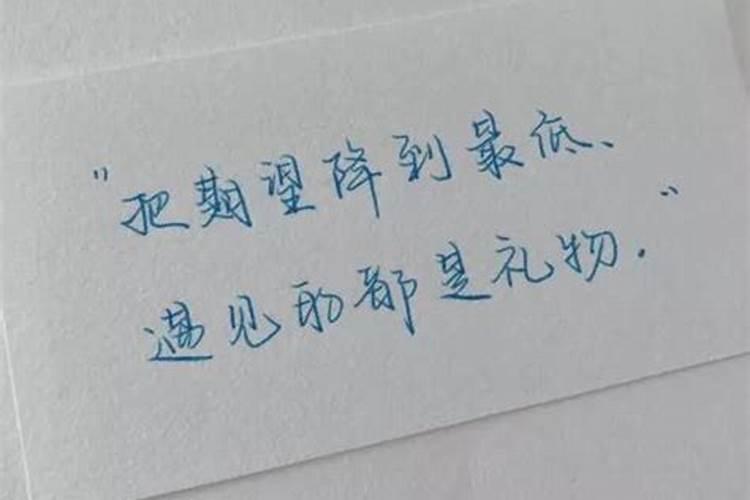 "把期望降到最低、
遇见的都是礼物."